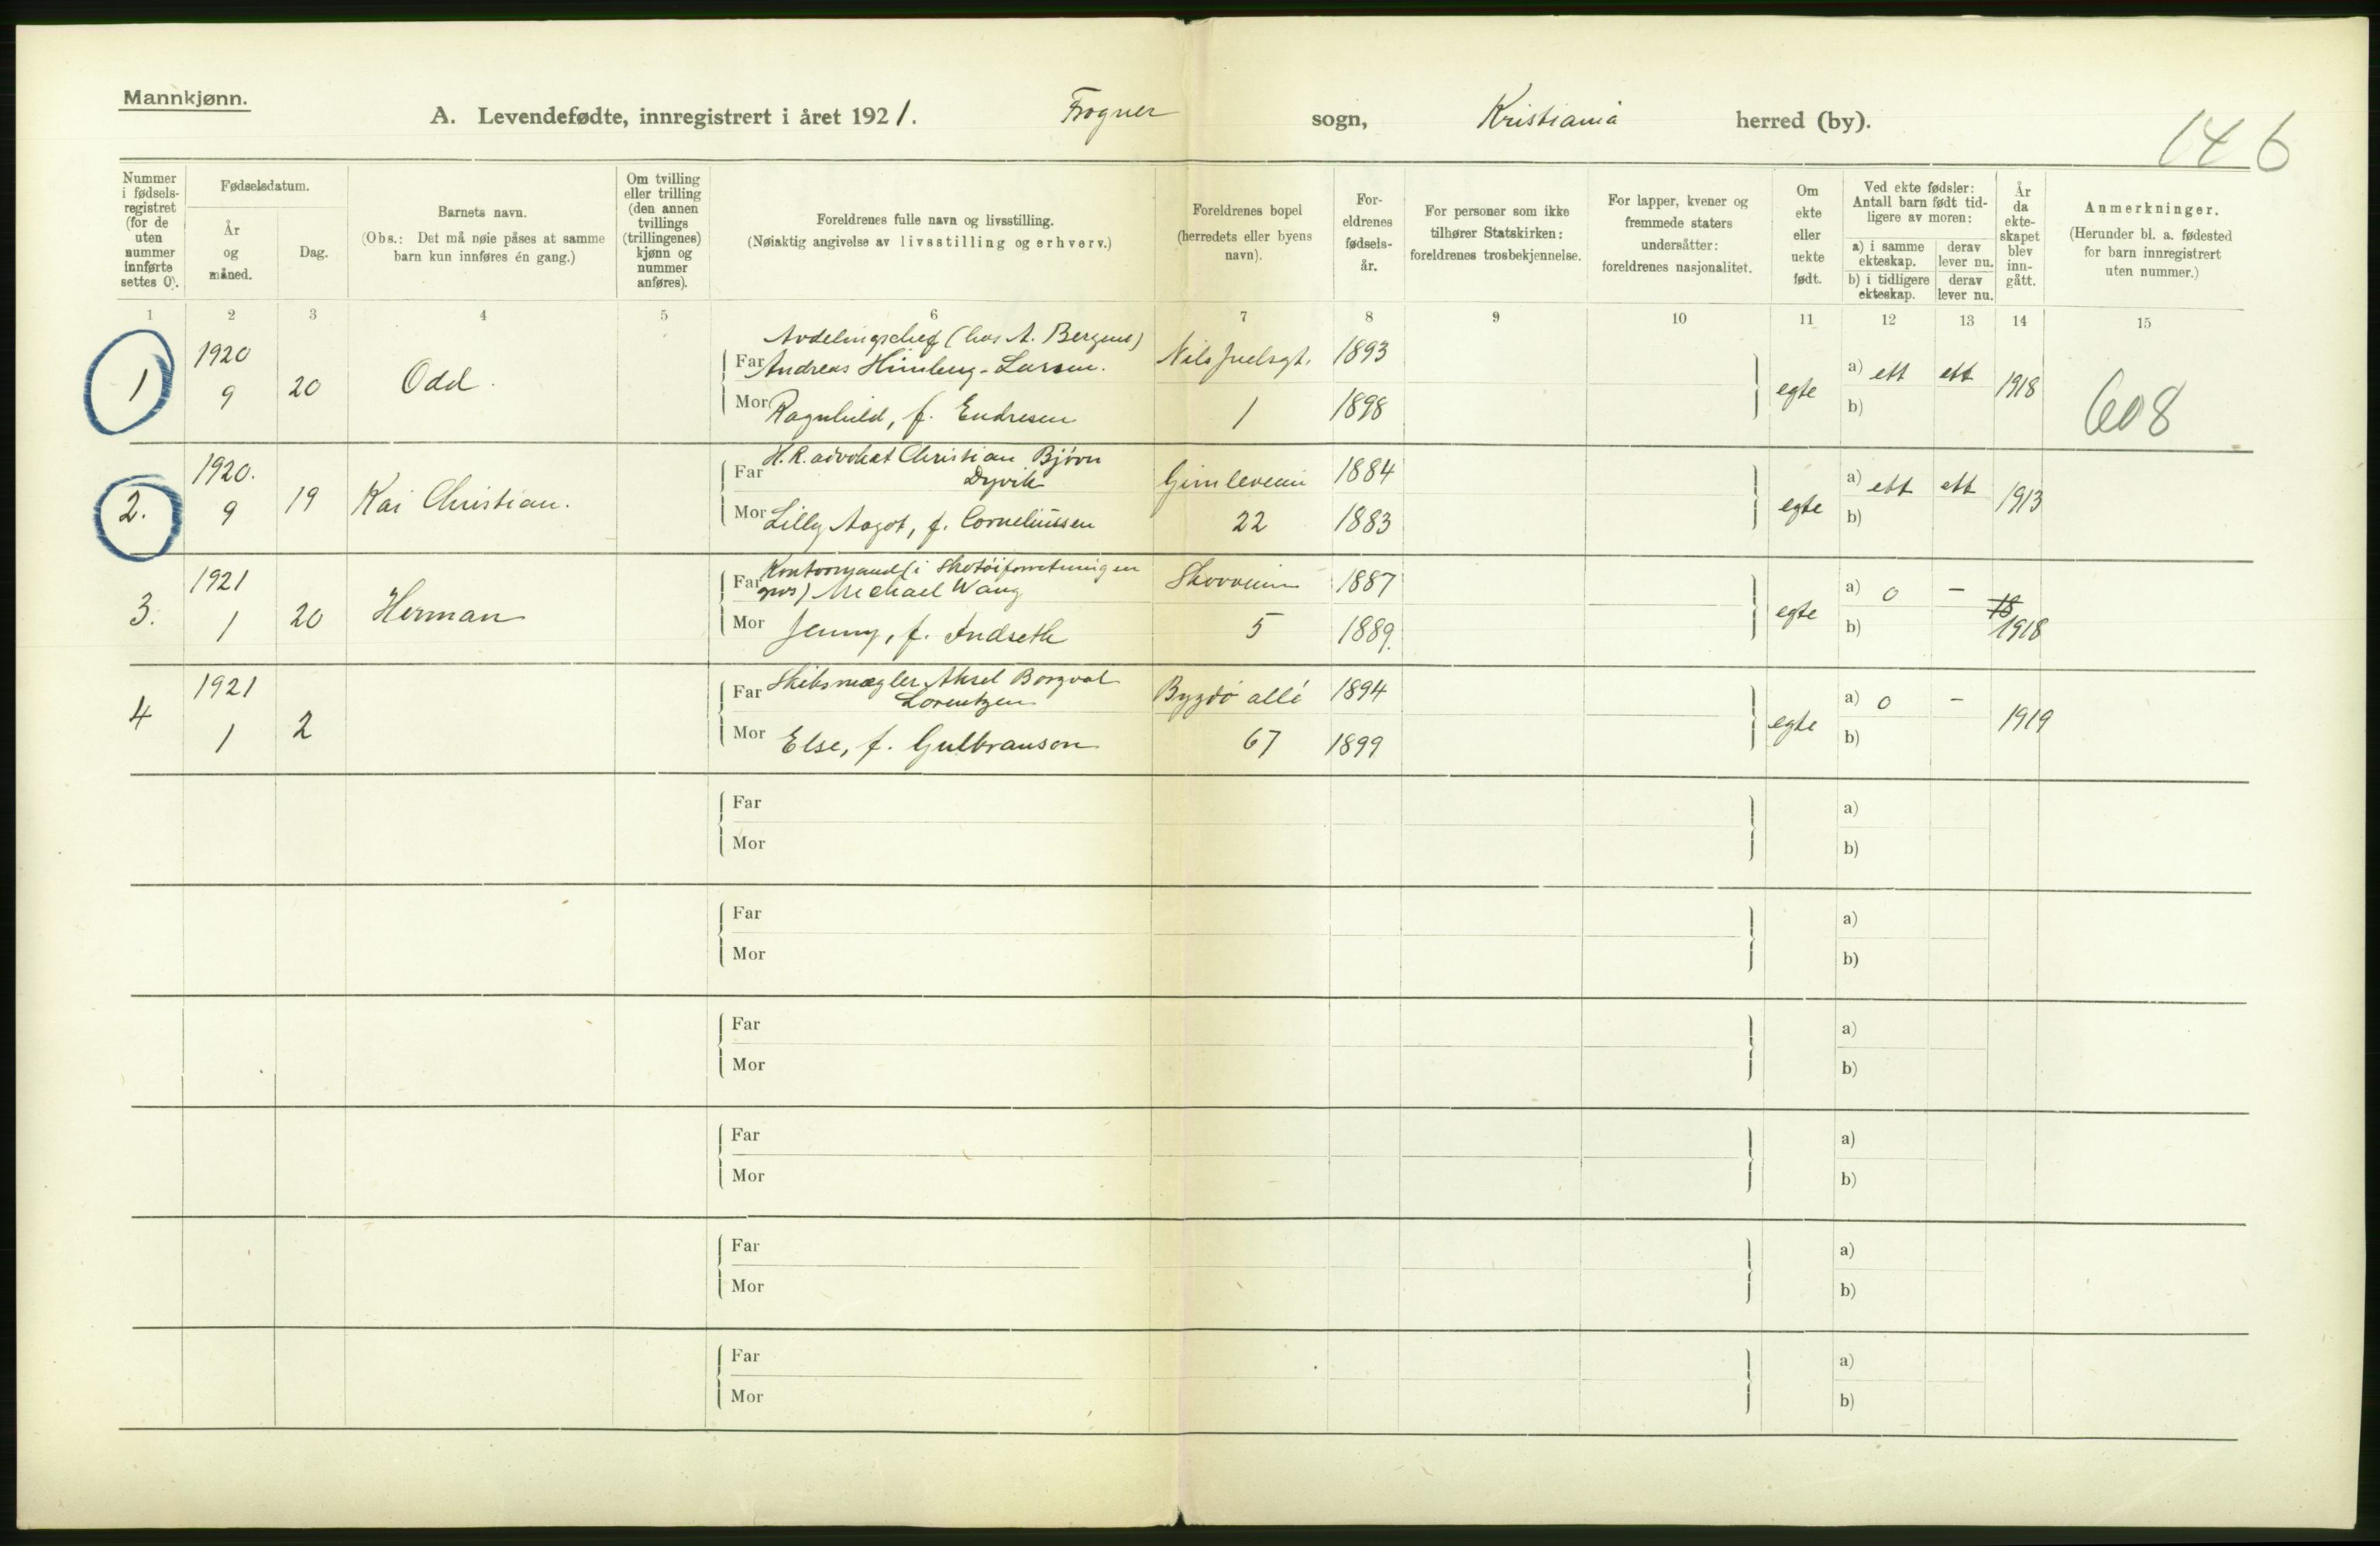 Mannkjønn.
A. Levendefødte, innregistrert i året 1921. Frogner sogn, Kristiania herred (by).
146
Nummer i fødsels-registret (for de uten nummer innførte settes 0).
Fødselsdatum.
År og måned.
Dag.
Barnets navn.
(Obs.: Det må nøie påses at samme barn kun innføres én gang.)
Om tvilling eller trilling (den annen tvillings (trillingenes) kjønn og nummer anføres).
Foreldrenes fulle navn og livsstilling.
(Nøiaktig angivelse av livsstilling og erhverv.)
Foreldrenes bopel (herredets eller byens navn).
For-eldrenes fødsels-år.
For personer som ikke tilhører Statskirken: foreldrenes trosbekjennelse.
For lapper, kvener og fremmede staters undersåtter: foreldrenes nasjonalitet.
Om ekte eller uekte født.
Ved ekte fødsler: Antall barn født tid-ligere av moren:
a) i samme ekteskap.
derav lever nu.
b) i tidligere ekteskap.
derav lever nu.
År da ekte-skapet blev inn-gått.
Anmerkninger.
(Herunder bl. a. fødested for barn innregistrert uten nummer.)
1 2 3 4 5 6 7 8 9 10 11 12 13 14 15
Avdelingschef (hos A. Bergens)
1 1920 9 20 Odd.
Far Andreas Himberg-Larsen. Nils Juelsgt. 1893
Mor Ragnhild, f. Endresen 1 1898
egte a) ett ett 1918
b)
608
H.R. advokat Christian Bjørn
2. 1920. 9 19 Kai Christian.
Far Dyvik Gimleveien 1884
Mor Lilly Aagot, f. Corneliussen 22 1883
egte a) ett ett 1913
b)
Kontormand (i Skotøiforretning en
3. 1921 1 20 Herman
Far gros) Michael Wang 1887
Mor Jenny, f. Indseth 5 1889.
egte a) 0 –
b) 18 1918
4 1921 1 2
Far Skibsmægler Aksel Borgvat
Lorentzen Bygdø allé 1894
Mor Else, f. Gulbranson 67 1899
egte a) 0 – 1919
b)
Far a)
Mor b)
Far a)
Mor b)
Far a)
Mor b)
Far a)
Mor b)
Far a)
Mor b)
Far a)
Mor b)